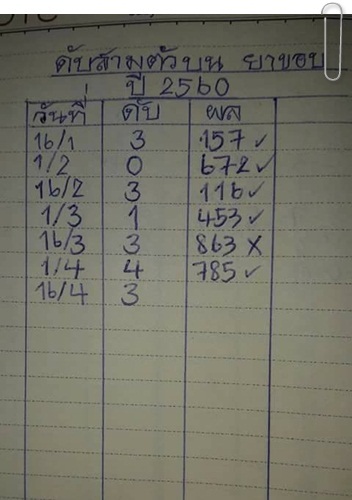 ดับสามตัวบน ยาขอบ
ปี 2560
วันที่ ดับ ผล
16/1 3 157 ✓
1/2 0 672 ✓
16/2 3 116 ✓
1/3 1 453 ✓
16/3 3 863 X
1/4 4 785 ✓
16/4 3